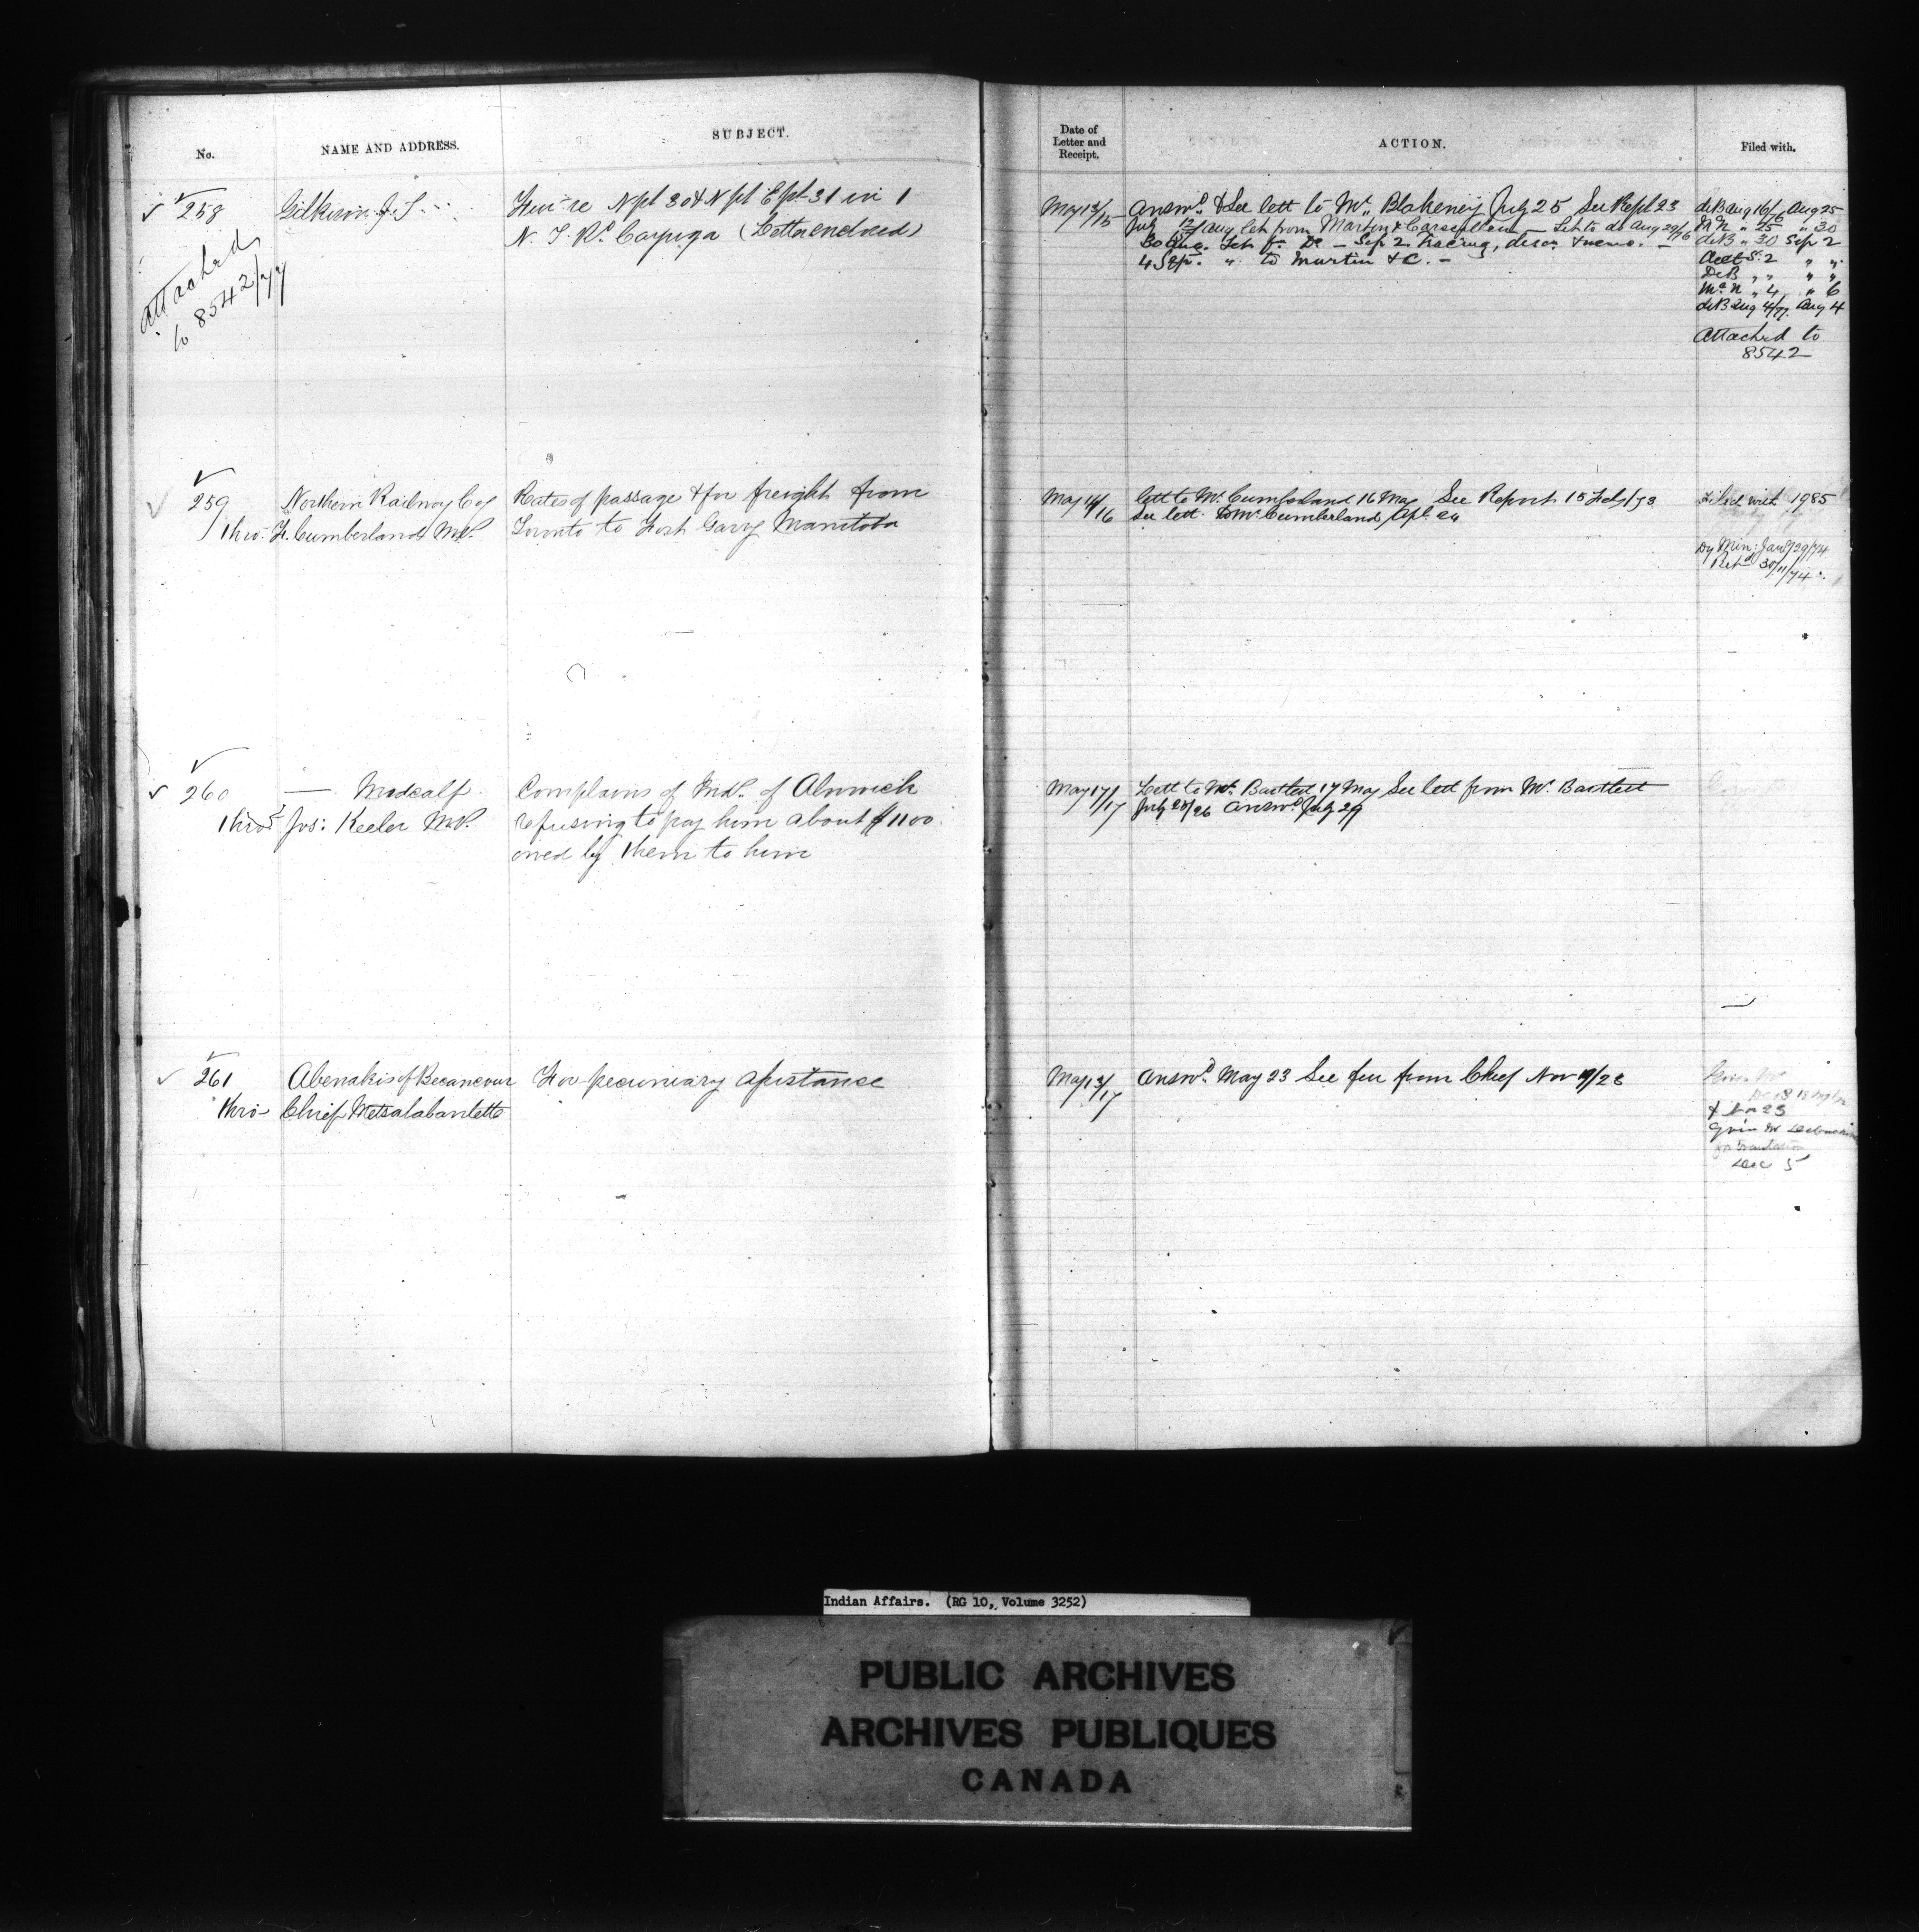 No.
NAME AND ADDRESS.
SUBJECT.
Date of
Letter and
Receipt.
ACTION.
Filed with.
258
Gilkison J. T.
re N pt 30 & N pt E pt 31 in 1
N. T. Rd. Cayuga (Letter enclosed)
Attached
to 8542/77
May 13/15
Answd. & See lett to Mr. Blakeney July 25 See Rept 23
July 12/15 Aug let from Martin & Let to do Aug 29/76
30 Aug. Let fr. Do — Sep 2 tracing, descn & memo. —
4 Sep. " to Martin & C. —
deB Aug 16/76 Aug 25
McN " 25 " 30
deB " 30 Sep 2
Acct S. 2 " "
DeB " " " "
McN " 4 " 6
deB Aug 4/77. Aug 4
Attached to
8542
259
Northern Railway Coy
thro: F. Cumberland MP.
Rates of passage & for freight from
Toronto to Fort Garry Manitoba
May 14/16
lett to Mr. Cumberland 16 May See Report 15 Feby/73
See lett to Mr Cumberland Apl. 24
Filed with 1985
Dy Min: Jany 29/74
Retd 30/11/74
260
— Medcalf
thro' Jos: Keeler MP.
Complains of Inds. of Alnwick
refusing to pay him about $1100
owed by them to him
May 17/17
Lett to Mr. Bartlett 17 May See lett from Mr. Bartlett
July 25/26 Answd July 29
261
Abenakis of Becancour
thro- Chief Metsalabanlette
For pecuniary assistance
May 13/17
Answd. May 23 See fur from Chief Nov 19/23
23
for translation
Dec 5
Indian Affairs. (RG 10, Volume 3252)
PUBLIC ARCHIVES
ARCHIVES PUBLIQUES
CANADA